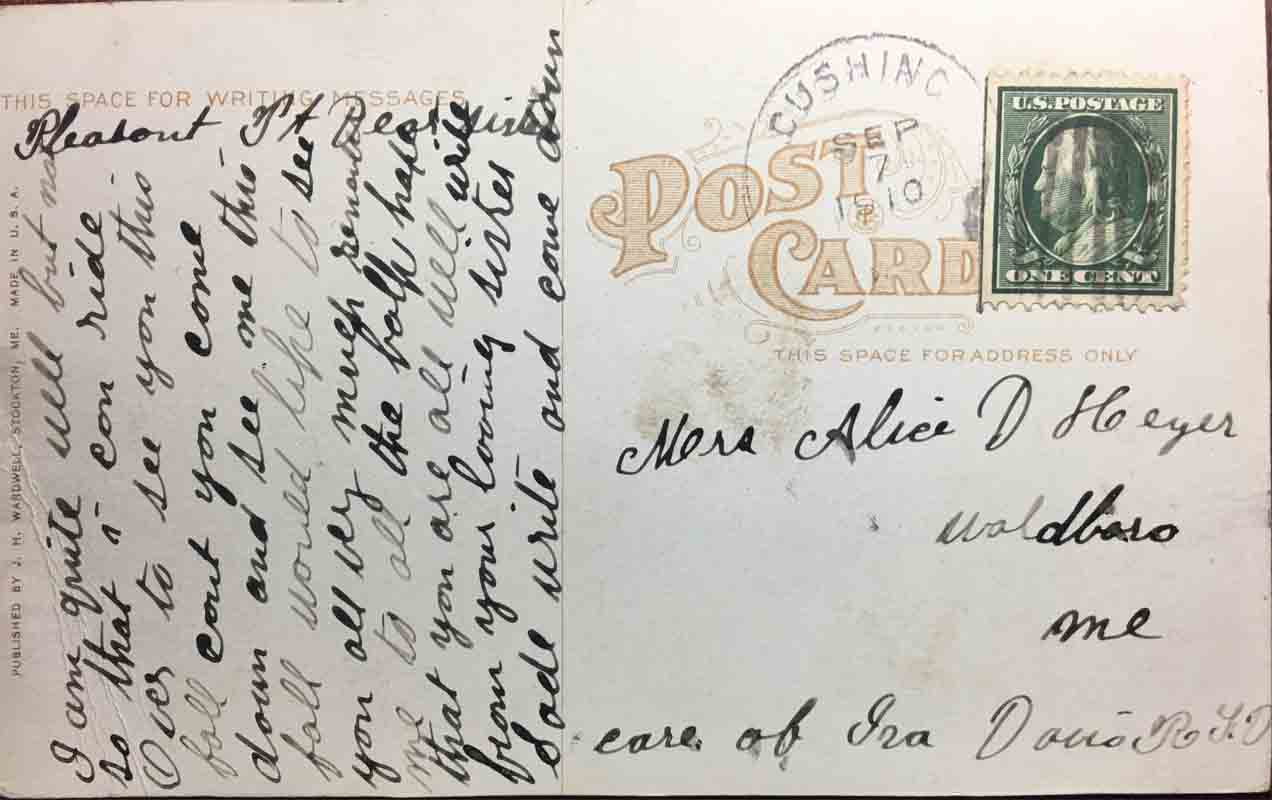 THIS SPACE FOR WRITING MESSAGES
Pleasont Pt Dear sister
I am quite well but not
so that i con ride
Over to see you this
fall cont you come
down and see me this
fall would like to see
you all very much remember
me to all the baby hope
that you are all well write
from your loving sister
Sade write and come down
PUBLISHED BY J. H. WARDWELL, STOCKTON, ME. MADE IN U. S. A.
CUSHING
SEP
7
1910
U.S. POSTAGE
ONE CENT
POST
CARD
THIS SPACE FOR ADDRESS ONLY
Mrs Alice D Heyer
Waldboro
me
care of Ira Davis R.F.D